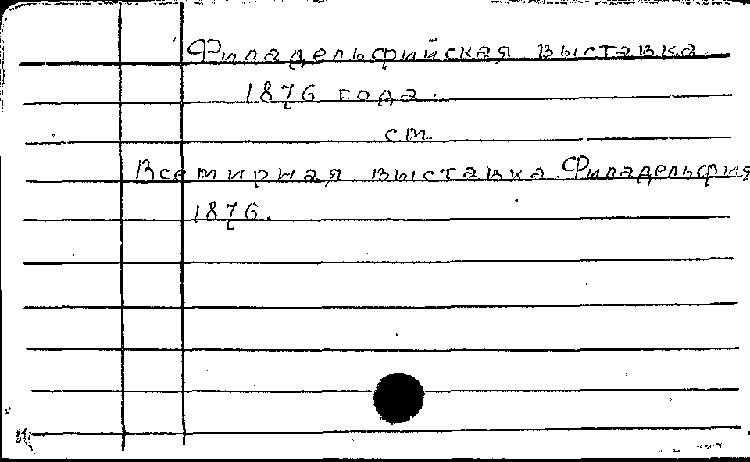 Филадельфийская выставка
1876 года.
см.
Всемирная выставка Филадельфия
1876.